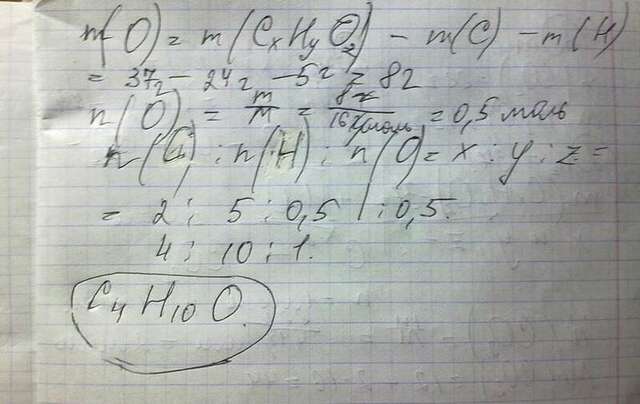 m(O) = m(CxHyOz) - m(C) - m(H)
= 37г - 24г - 5г = 8г
n(O) = m/M = 8г/16г/моль = 0,5 моль
n(C) : n(H) : n(O) = x : y : z =
= 2 : 5 : 0,5 | : 0,5.
4 : 10 : 1.
C4H10O.